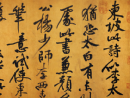 東坡此詩似
猶恐太白有未
處此書兼顏
公楊少師李西
筆意試使東